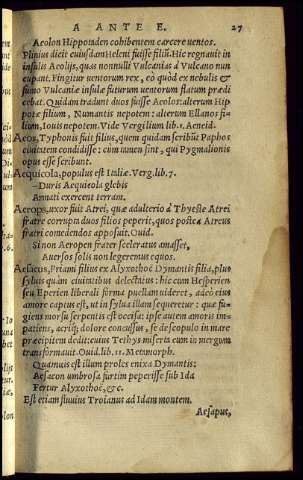 A ANTE E. 27
Aeolon Hippotaden cohibentem carcere uentos.
Plinius dicit eiusdam Heleni fuisse filiū. Hic regnauit in
insulis Aeolijs, quas nonnulli Vulcanias à Vulcano nun
cupant. Fingitur uentorum rex, eò quòd ex nebulis &
fumo Vulcaniæ insulæ futurum uentorum flatum prædi
cebat. Quidam tradunt duos fuisse Aeolos: alterum Hip
potæ filium, Numantis nepotem: alterum Ellanos fi-
lium, Iouis nepotem. Vide Vergilium lib. 1. Aeneid.
Aeos, Typhonis fuit filius, quem quidam scribūt Paphos
ciuitatem condidisse: cùm tamen sint, qui Pygmalionis
opus esse scribunt.
Aequicola, populus est Italiæ. Verg. lib. 7.
–Duris Aequicola glebis
Armati exercent terram.
Aerops, uxor fuit Atrei, quæ adulterio à Thyeste Atrei
fratre corrupta duos filios peperit, quos postea Atreus
fratri comedendos apposuit. Ouid.
Si non Aeropen frater sceleratus amasset,
Auersos solis non legeremus equos.
Aesacus, Priami filius ex Alyxothoë Dymantis filia, plus
syluis quàm ciuitatibus delectatus: hic cum Hesperien-
seu Peperien liberali forma puellam uideret, adeò eius
amore captus est, ut in sylua illam sequeretur: quæ fu-
giens morsu serpentis est occisa: ipse autem amoris im-
patiens, acriq; dolore concussus, se de scopulo in mare
præcipitem dedit: cuius Tethys miserta eum in mergum
transformauit. Ouid. lib. 11. Metamorph.
Quamuis est illum proles enixa Dymantis:
Aesacon umbrosa furtim peperisse sub Ida
Fertur Alyxothoë, &c.
Est etiam fluuius Troianus ad Idam montem.
Aesapus,